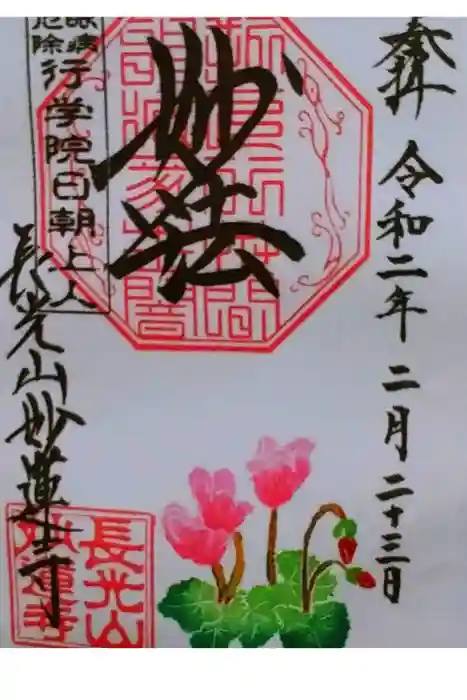 奉拝
令和二年 二月 二十三日
妙法
眼病
厄除
行学院日朝上人
長光山妙蓮寺
長光山
妙蓮寺